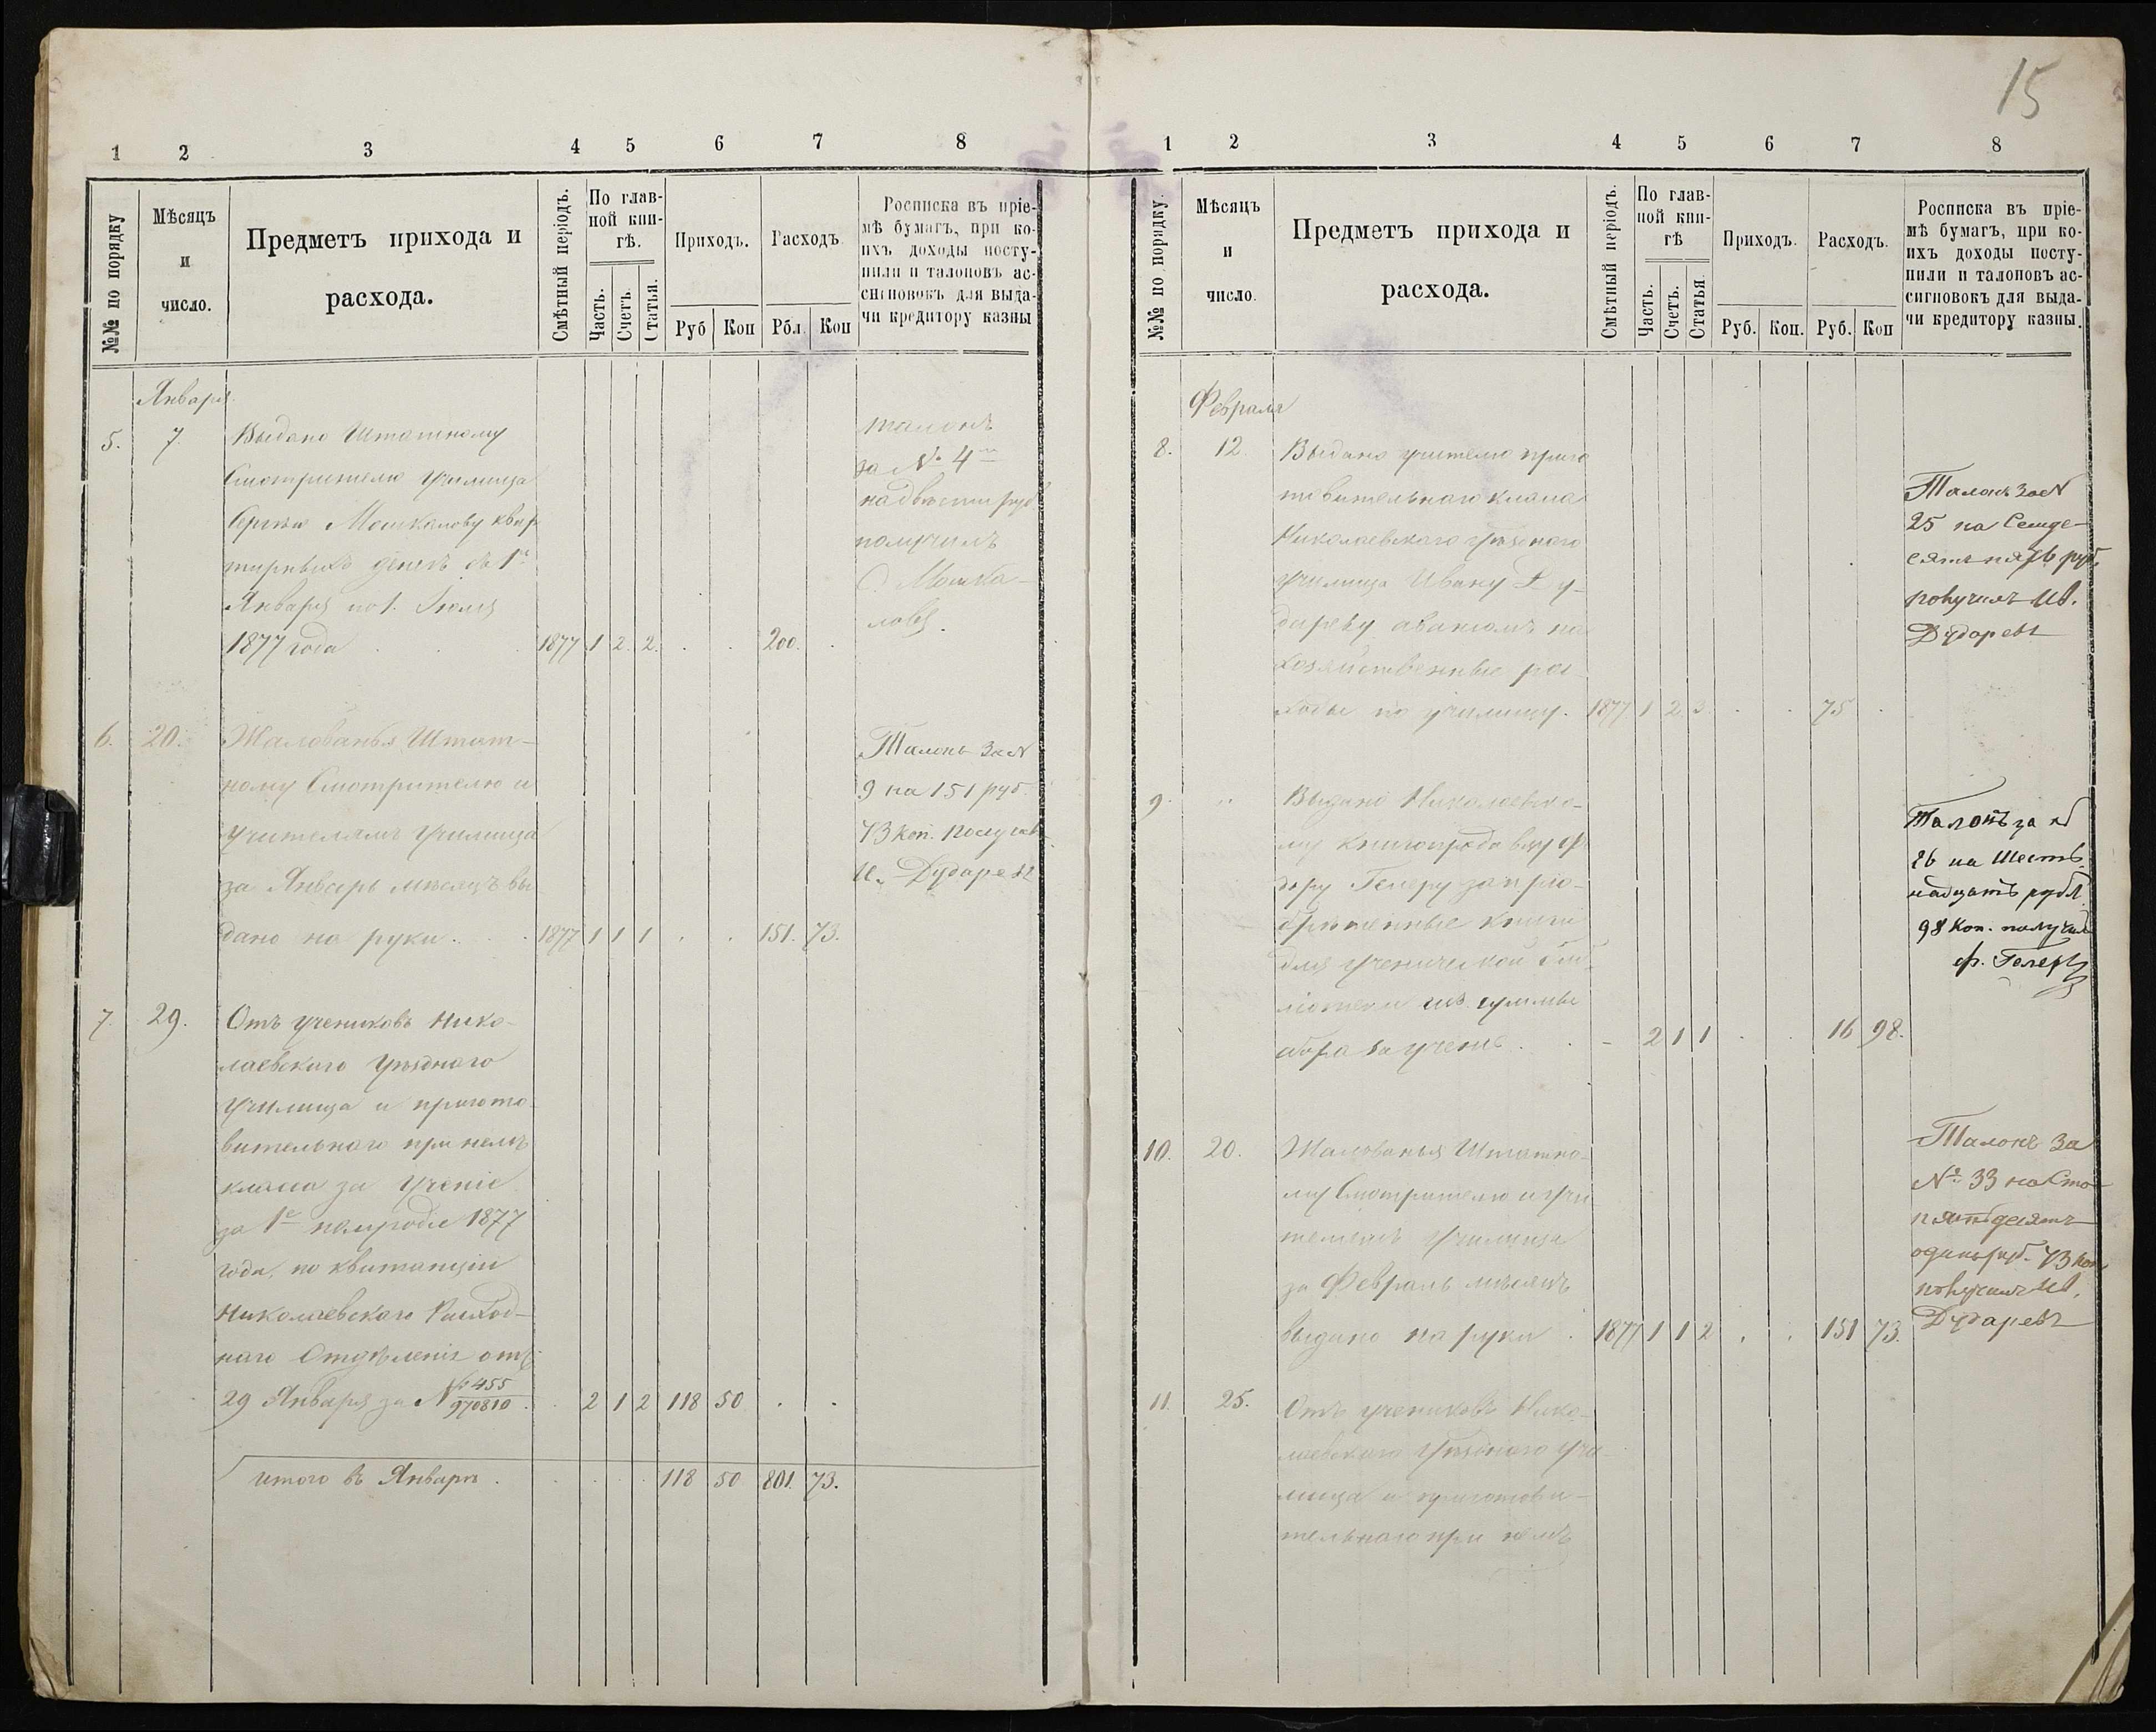 15
1 2 3 4 5 6 7 8
№№ по порядку
Мѣсяцъ
и
число.
Предметъ прихода и
расхода.
Смѣтный періодъ.
По глав-
ной кни-
гѣ.
Часть.
Счетъ.
Статья.
Приходъ.
Руб Коп
Расходъ
Рбл. Коп
Росписка въ пріе-
мѣ бумагъ, при ко-
ихъ доходы посту-
пили и талоновъ ас-
сигновокъ для выда-
чи кредитору казны
Января
5. 7. Выдано Штатному
Смотрителю Училища
Сергѣю Мошкалову квар
тирныхъ денегъ съ 1е
Января по 1. Іюля
1877 года 1877 1 2. 2. 200.
талонъ
за № 4м
на двѣсти руб
получилъ
С. Мошка-
ловъ.
6. 20. Жалованья Штат-
ному Смотрителю и
учителямъ Училища
за Январь мѣсяцъ вы
дано на руки. 1877 1 1 1 151. 73.
Талонъ за №
9 на 151 руб.
73 коп. получилъ
И. Дударевъ
7. 29. Отъ учениковъ Нико-
лаевскаго Уѣзднаго
Училища и пригото-
вительнаго при немъ
класса за ученіе
за 1е полугодіе 1877
года, по квитанціи
Николаевскаго Расход-
наго Отдѣленія отъ
29 Января за № 455/970810 2 1 2 118 50
итого въ Январѣ. 118 50 801. 73.
1 2 3 4 5 6 7 8
№№ по порядку.
Мѣсяцъ
и
число.
Предметъ прихода и
расхода.
Смѣтный періодъ.
По глав-
ной кни-
гѣ
Часть.
Счетъ.
Статья.
Приходъ.
Руб. Коп.
Расходъ.
Руб. Коп
Росписка въ пріе-
мѣ бумагъ, при ко-
ихъ доходы посту-
пили и талоновъ ас-
сигновокъ для выда-
чи кредитору казны.
Февраля
8. 12. Выдано учителю приго
товительнаго класса
Николаевскаго Уѣзднаго
Училища Ивану Ду-
дареву авансомъ на
хозяйственные рас-
ходы по училищу. 1877 1 2. 3. 75
Талонъ за №
25 на Семде-
сятъ пять руб.
получилъ Ив.
Дударевъ
9. " Выдано Николаевско-
му книгопродавцу Ф
дору Гелеру за пріо-
брѣтенные книги
для ученической биб-
ліотеки изъ суммы
сбора за ученіе. - 2 1 1 16 98.
Талонъ за №
26 на Шест
надцать рубл.
98 коп. получилъ
Ф. Гелеръ
10. 20. Жалованья Штатно-
му Смотрителю и учи
телямъ Училища
за Февраль мѣсяцъ
выдано на руки. 1877 1 1 2 151 73.
Талонъ за
№ 33 на Сто-
пятьдесятъ
одинъ руб. 73 коп.
получилъ Ив.
Дударевъ
11. 25. Отъ учениковъ Нико-
лаевскаго Уѣзднаго Учи-
лища и приготови-
тельнаго при немъ